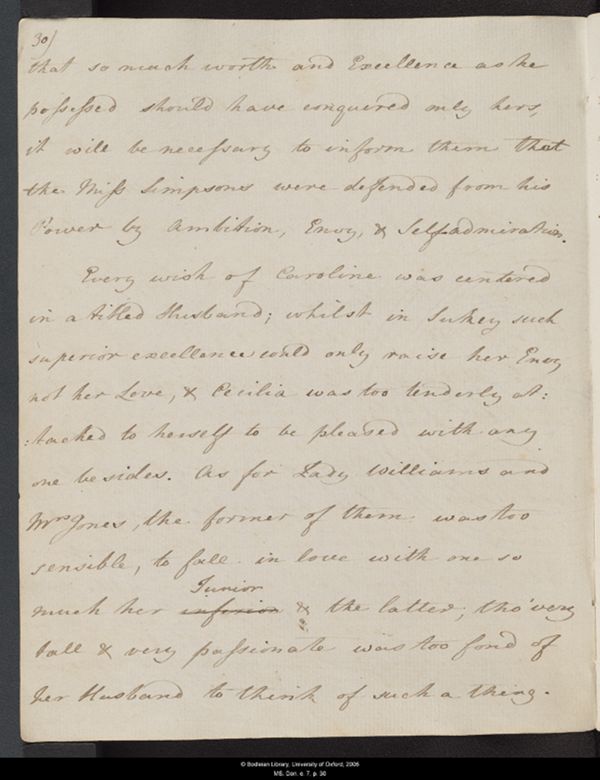 30)
that so much worth and Excellence as he
possessed should have conquered only hers,
it will be necessary to inform them that
the Miss Simpsons were defended from his
Power by Ambition, Envy, & Selfadmiration.
Every wish of Caroline was centered
in a titled Husband; whilst in Sukey such
superior excellence could only raise her Envy
not her Love, & Cecilia was too tenderly at:
:tached to herself to be pleased with any
one besides. As for Lady Williams and
Mrs Jones, the former of them was too
sensible, to fall in love with one so
Junior
much her inferior & the latter, tho' very
tall & very passionate was too fond of
her Husband to think of such a thing.
© Bodleian Library, University of Oxford, 2006
MS. Don. e. 7, p. 30